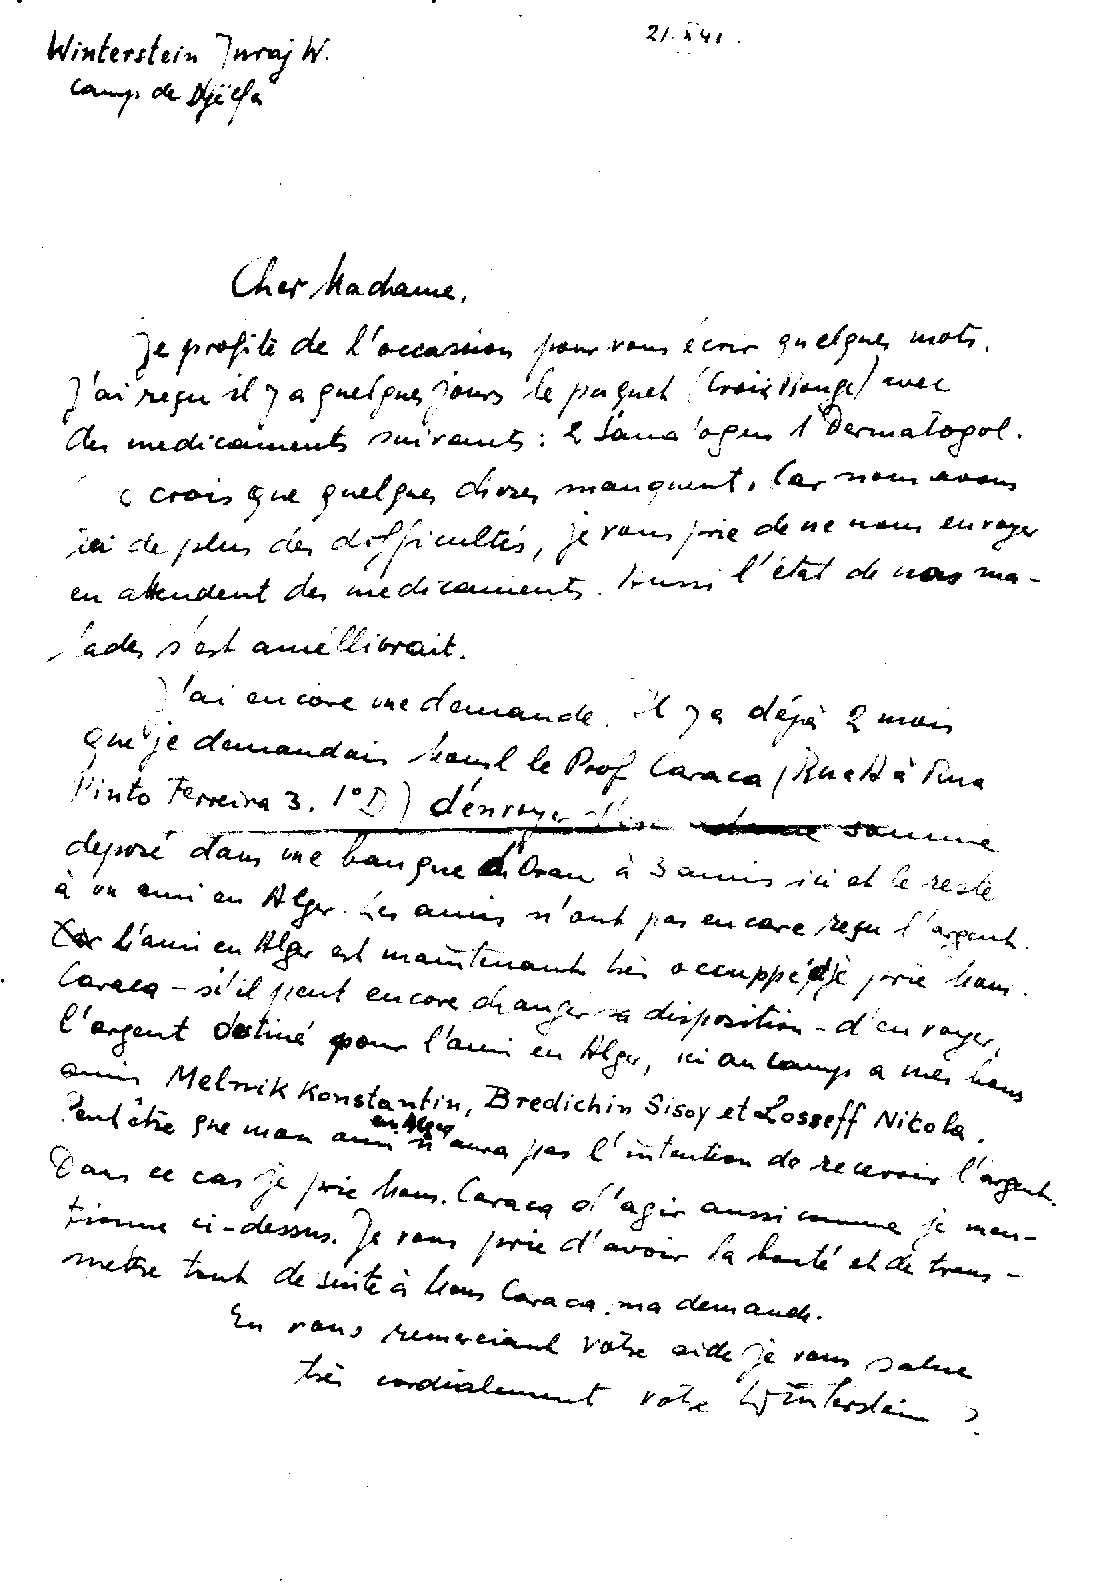 Winterstein Juraj W.
21.X41.
Camp de Djelfa
Cher Madame,
Je profite de l'occassion pour vous écrir quelques mots.
J'ai reçu il y a quelques jours le paquet (Croix Rouge) avec
des medicaments suivants: 2 Sana'ogen 1 Dermatogol.
crois que quelques choses manquent. Car nous avons
ici de plus des difficultés, je vous prie de ne nous envoyer
en attendent des medicaments. Aussi l'état de nos ma-
lades s'est améllivrait.
J'ai encore une demande. Il y a déjà 2 mois
que je demandais le Prof Caraca (Rua à Rua
Pinto Ferreira 3. 1°D) d'envoyer somme
deposé dans une banque d'Oran à 3 amis ici et le reste
à un ami en Alger. Les amis n'ont pas encore reçu l'argent.
L'ami en Alger est maintenant très occuppé je prie Mons.
Caraca - s'il peut encore changer sa disposition - d'envoyer,
l'argent destiné pour l'ami en Alger, ici au camp a mes bons
amis Melnik Konstantin, Bredichin Sisoy et Losseff Nikola.
Peut être que mon ami en Alger n'aura pas l'intention de recevoir l'argent.
Dans ce cas je prie Mons. Caraca d'agir aussi comme je men-
tionne ci-dessus. Je vous prie d'avoir la bonté et de trans-
mettre tout de suite à Mons Caraca ma demande.
En vous remerciant votre aide je vous salue
très cordialement votre Winterstein J.